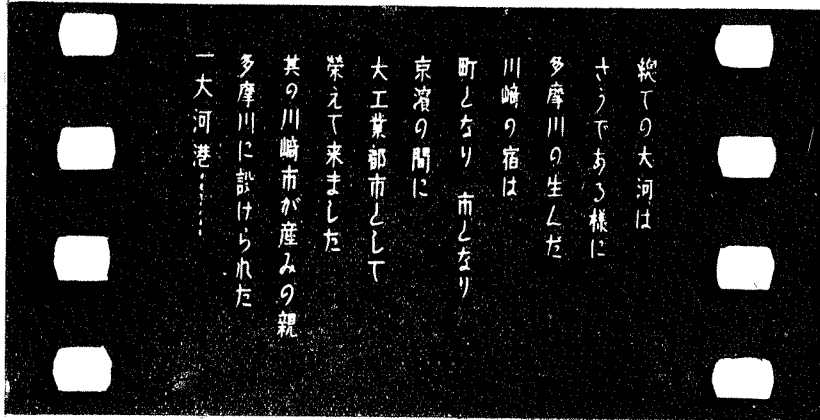 総ての大河は
さうである様に
多摩川の生んだ
川崎の宿は
町となり 市となり
京濱の間に
大工業都市として
栄えて来ました
其の川崎市が産みの親
多摩川に設けられた
一大河港……